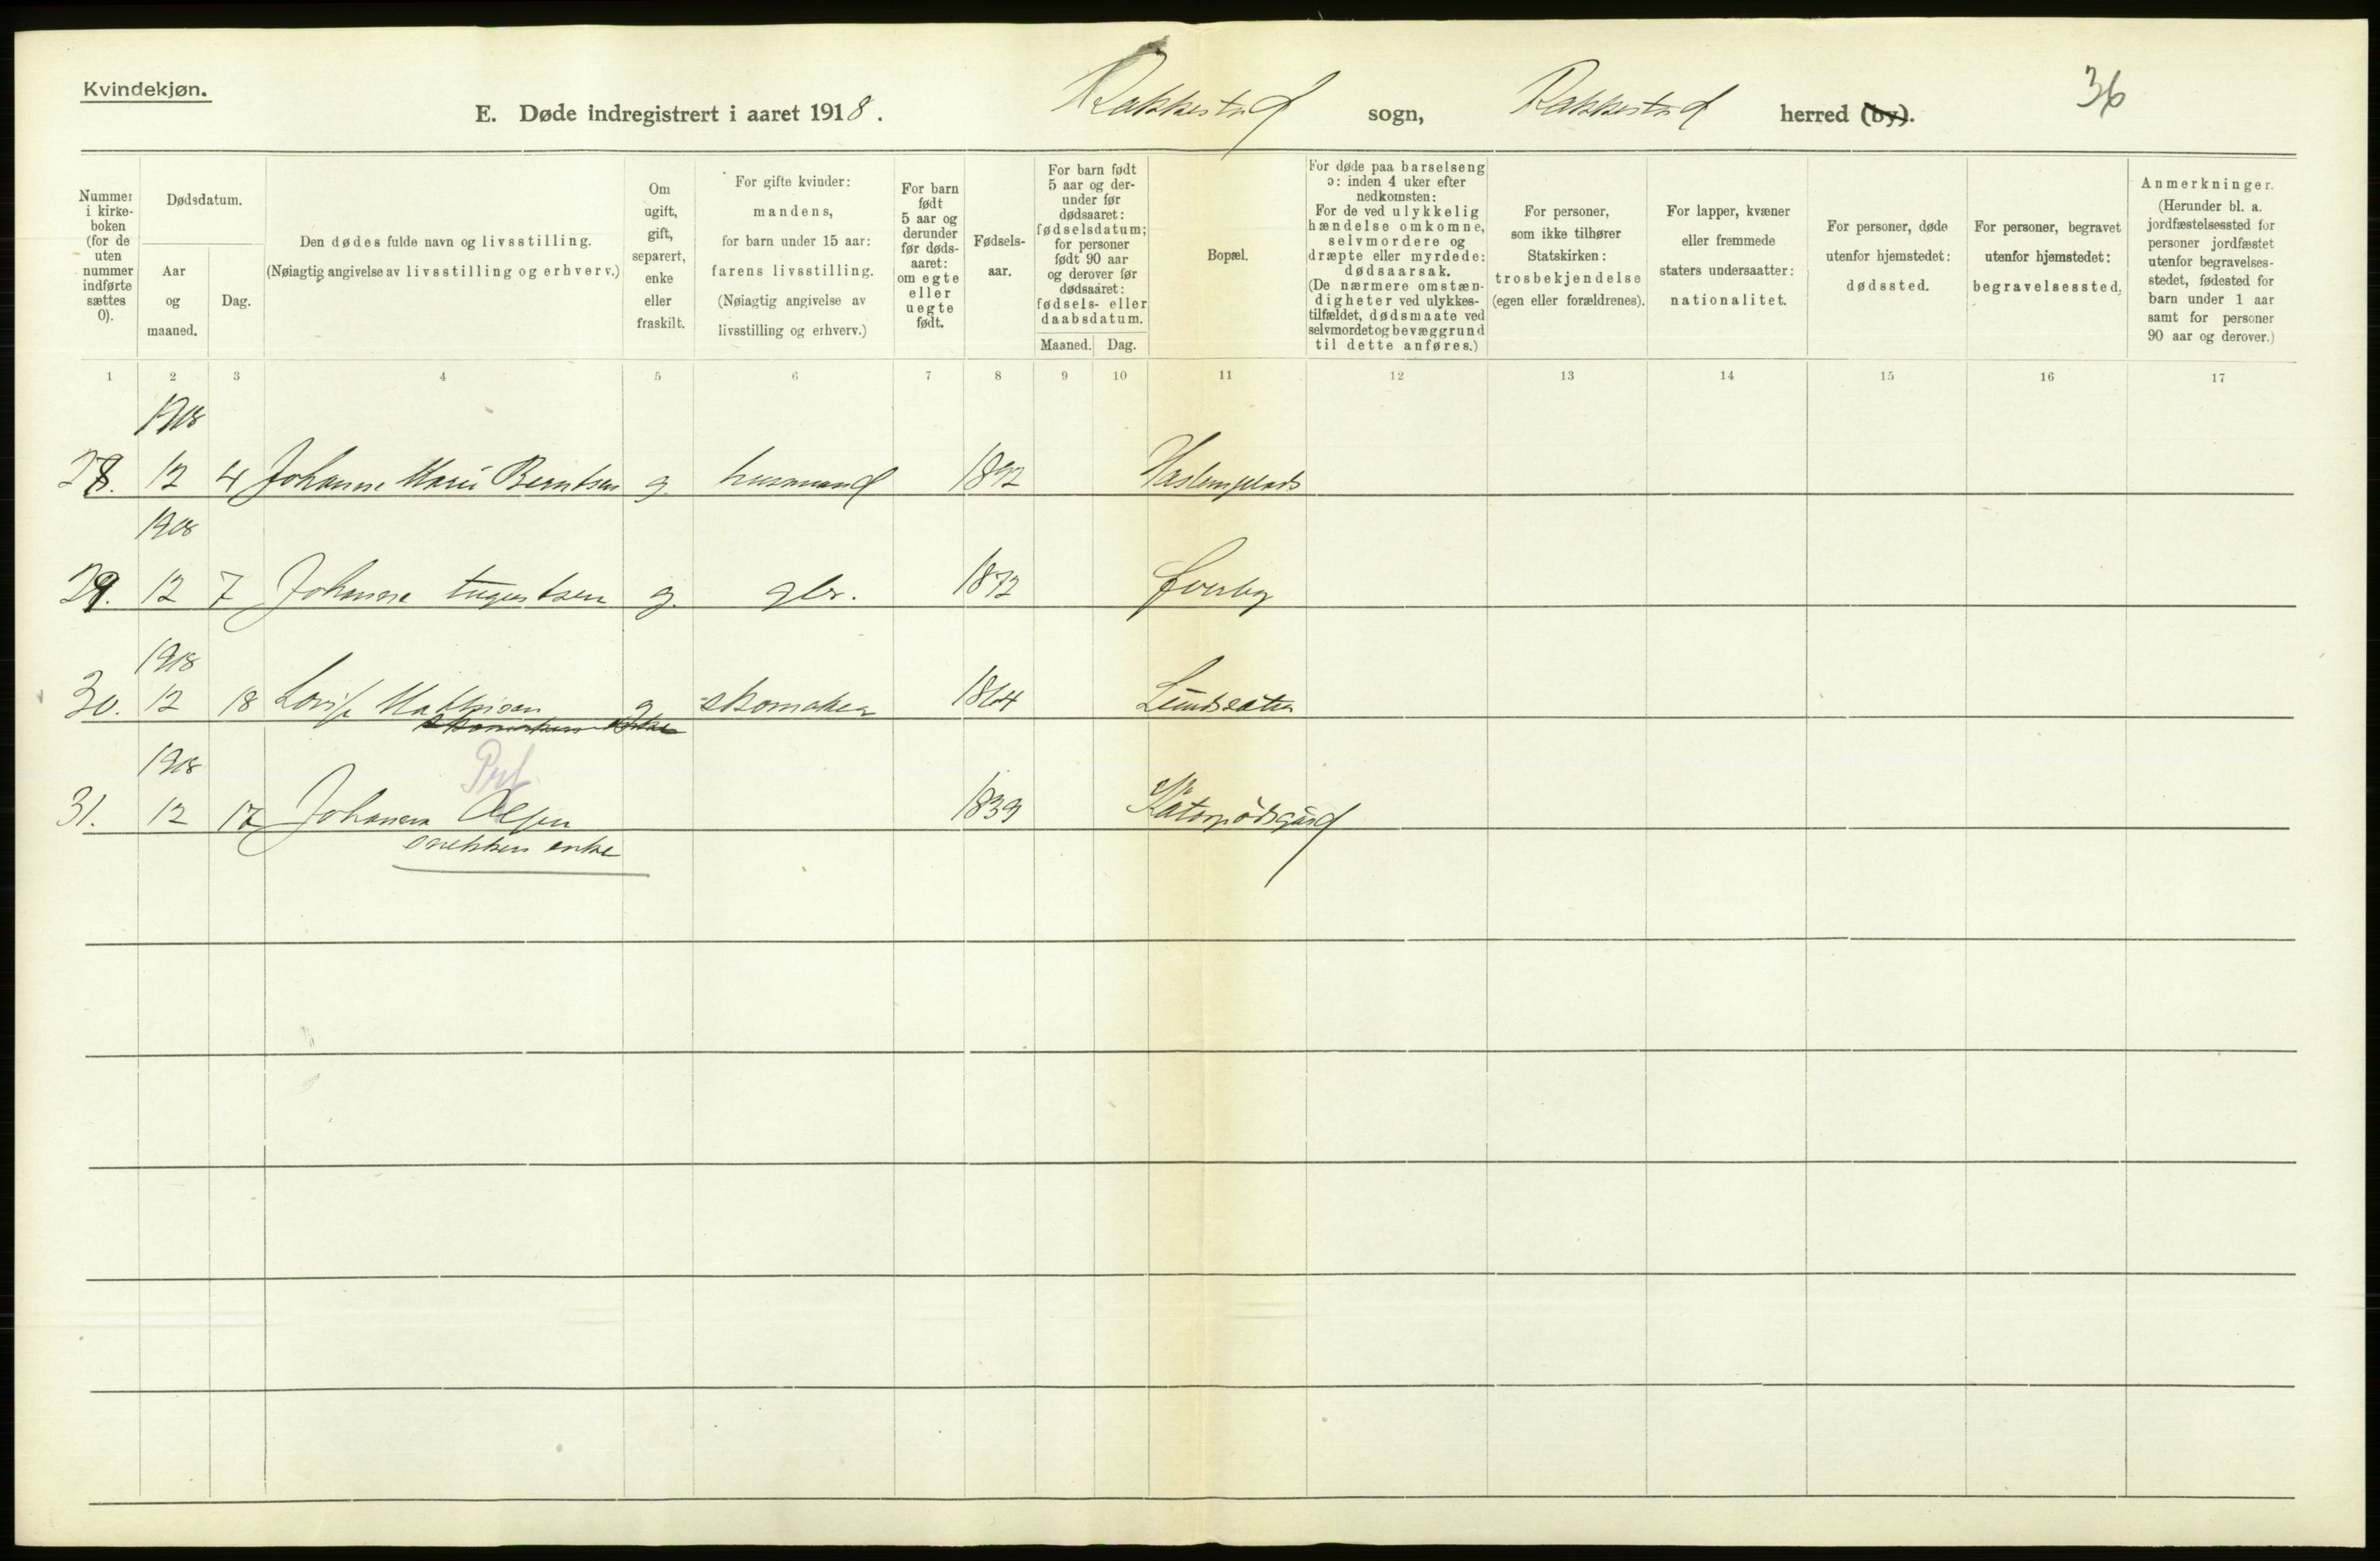 Kvindekjøn.
E. Døde indregistrert i aaret 1918. Rakkestad sogn, Rakkestad herred (by).
36
Nummer i kirke-boken (for de uten nummer indførte sættes 0).
Dødsdatum.
Aar og maaned.
Dag.
Den dødes fulde navn og livsstilling.
(Nøiagtig angivelse av livsstilling og erhverv.)
Om ugift, gift, separert, enke eller fraskilt.
For gifte kvinder: mandens, for barn under 15 aar: farens livsstilling. (Nøiagtig angivelse av livsstilling og erhverv.)
For barn født 5 aar og derunder før døds-aaret: om egte eller uegte født.
Fødsels-aar.
For barn født 5 aar og der-under før dødsaaret: fødselsdatum; for personer født 90 aar og derover før dødsaaret: fødsels- eller daabsdatum.
Maaned. Dag.
Bopæl.
For døde paa barselseng ɔ: inden 4 uker efter nedkomsten: For de ved ulykkelig hændelse omkomne, selvmordere og dræpte eller myrdede: dødsaarsak. (De nærmere omstæn-digheter ved ulykkes-tilfældet, dødsmaate ved selvmordet og bevæggrund til dette anføres.)
For personer, som ikke tilhører Statskirken: trosbekjendelse (egen eller forældrenes).
For lapper, kvæner eller fremmede staters undersaatter: nationalitet.
For personer, døde utenfor hjemstedet: dødssted.
For personer, begravet utenfor hjemstedet: begravelsessted.
Anmerkninger. (Herunder bl. a. jordfæstelsessted for personer jordfæstet utenfor begravelses-stedet, fødested for barn under 1 aar samt for personer 90 aar og derover.)
1 2 3 4 5 6 7 8 9 10 11 12 13 14 15 16 17
1918
28. 12 4 Johanne Marie Berntsen g. husmand 1892
1918
29. 12 7 Johanne g. gbr. 1872
1918
30. 12 18 Lovise Mathisen g skomaker 1864 Lundsæter
1918
31. 12 17 Johanna Olsen 1839
snekker enke